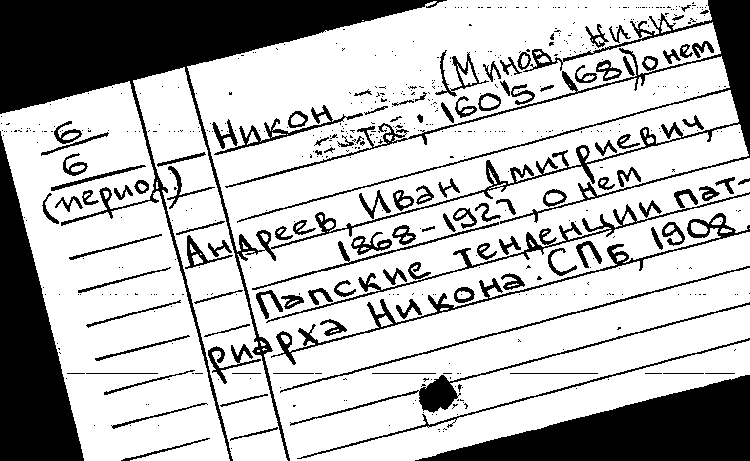 6
6
(период)
Никон (Минов, Ники-
та; 1605-1681), о нем
Андреев, Иван Дмитриевич,
1868-1927, о нем
Папские тенденции пат-
риарха Никона. СПб, 1908.